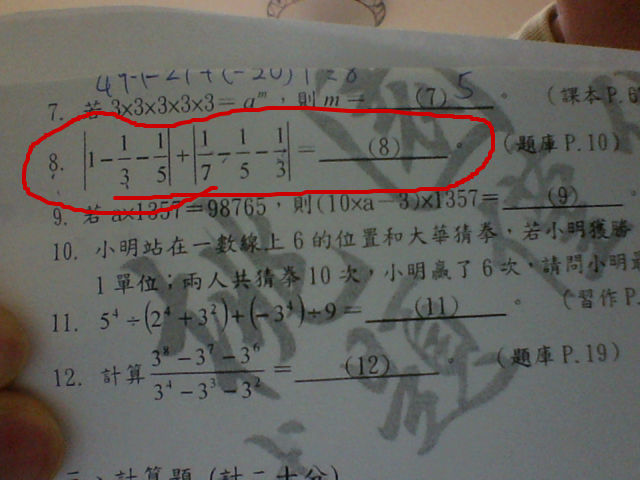 7. 若 3×3×3×3×3=aᵐ，則 m= (7) 5 。 (課本 P.6
8. |1－1/3－1/5|＋|1/7－1/5－1/3|＝ (8) 。 (題庫 P.10)
9. 若 a×1357＝98765，則(10×a－3)×1357＝ (9) 。
10. 小明站在一數線上 6 的位置和大華猜拳，若小明獲勝
1 單位；兩人共猜拳 10 次，小明贏了 6 次，請問小明最
11. 5⁴÷(2⁴＋3²)＋(－3⁴)÷9＝ (11) 。 (習作 P.
12. 計算 (3⁸－3⁷－3⁶)/(3⁴－3³－3²)＝ (12) 。 (題庫 P.19)
二、計算題 (計二十分)